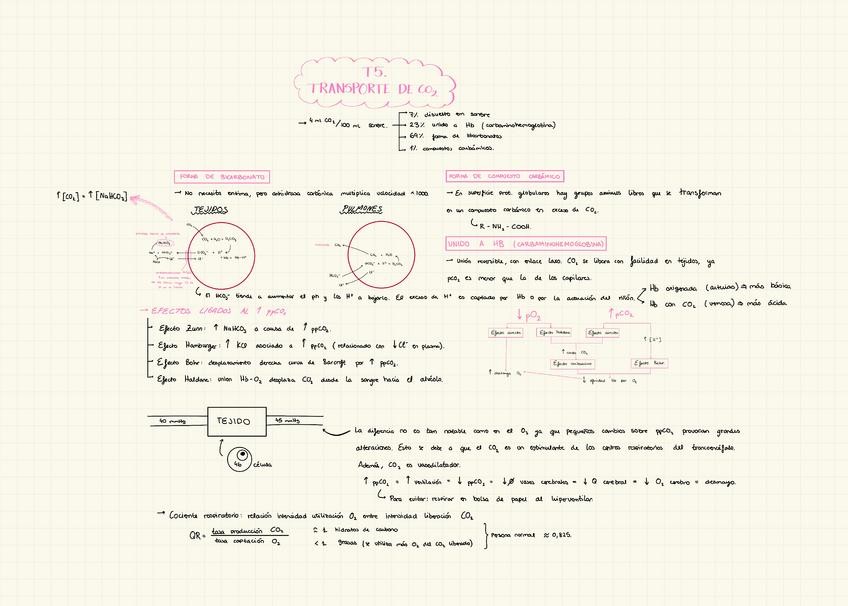 T5.
TRANSPORTE DE CO2
→ 4 ml CO2/100 ml sangre.
7% disuelto en sangre
23% unido a Hb (carbaminohemoglobina)
69% forma de bicarbonatos
1% compuestos carbámicos.
FORMA DE BICARBONATO
→ No necesita enzima, pero anhidrasa carbónica multiplica velocidad ×1000.
↑[CO2] = ↑[NaHCO3]
TEJIDOS
PULMONES
↳ El HCO3⁻ tiende a aumentar el pH y los H⁺ a bajarlo. El exceso de H⁺ es captado por Hb o por la actuación del riñón.
→ EFECTOS LIGADOS AL ↑ ppCO2
Efecto Zunn: ↑ NaHCO3 a causa de ↑ ppCO2.
Efecto Hamburger: ↑ KCl asociado a ↑ ppCO2 (relacionado con ↓Cl⁻ en plasma).
Efecto Bohr: desplazamiento derecha curva de Barcroft por ↑ ppCO2.
Efecto Haldane: unión Hb-O2 desplaza CO2 desde la sangre hacia el alvéolo.
FORMA DE COMPUESTO CARBÁMICO
→ En superficie prot. globulares hay grupos aminos libres que se transforman
en un compuesto carbámico en exceso de CO2.
↳ R - NH2 - COOH.
UNIDO A HB (CARBAMINOHEMOGLOBINA)
→ Unión reversible, con enlace laxo. CO2 se libera con facilidad en tejidos, ya
pCO2 es menor que la de los capilares.
Hb oxigenada (arterial) ⇒ más básica
Hb con CO2 (venosa) ⇒ más ácida
↓ pO2
↑ pCO2
Efecto directo
Efecto Haldane
Efecto directo
↑ [H⁺]
Efecto Bohr
↓ afinidad Hb por O2
40 mmHg
TEJIDO
45 mmHg
46
célula
La diferencia no es tan notable como en el O2 ya que pequeños cambios sobre ppCO2 provocan grandes
alteraciones. Esto se debe a que el CO2 es un estimulante de los centros respiratorios del troncoencéfalo.
Además, CO2 es vasodilatador.
↑ ppCO2 = ↑ ventilación = ↓ ppCO2 = ↓Ø vasos cerebrales = ↓ Q cerebral = ↓ O2 cerebro = desmayo.
↳ Para evitar: respirar en bolsa de papel al hiperventilar.
→ Cociente respiratorio: relación intensidad utilización O2 entre intensidad liberación CO2
QR = tasa producción CO2
tasa captación O2
= 1 hidratos de carbono
< 1 grasas (se utiliza más O2 del CO2 liberado)
Persona normal ≈ 0,825.